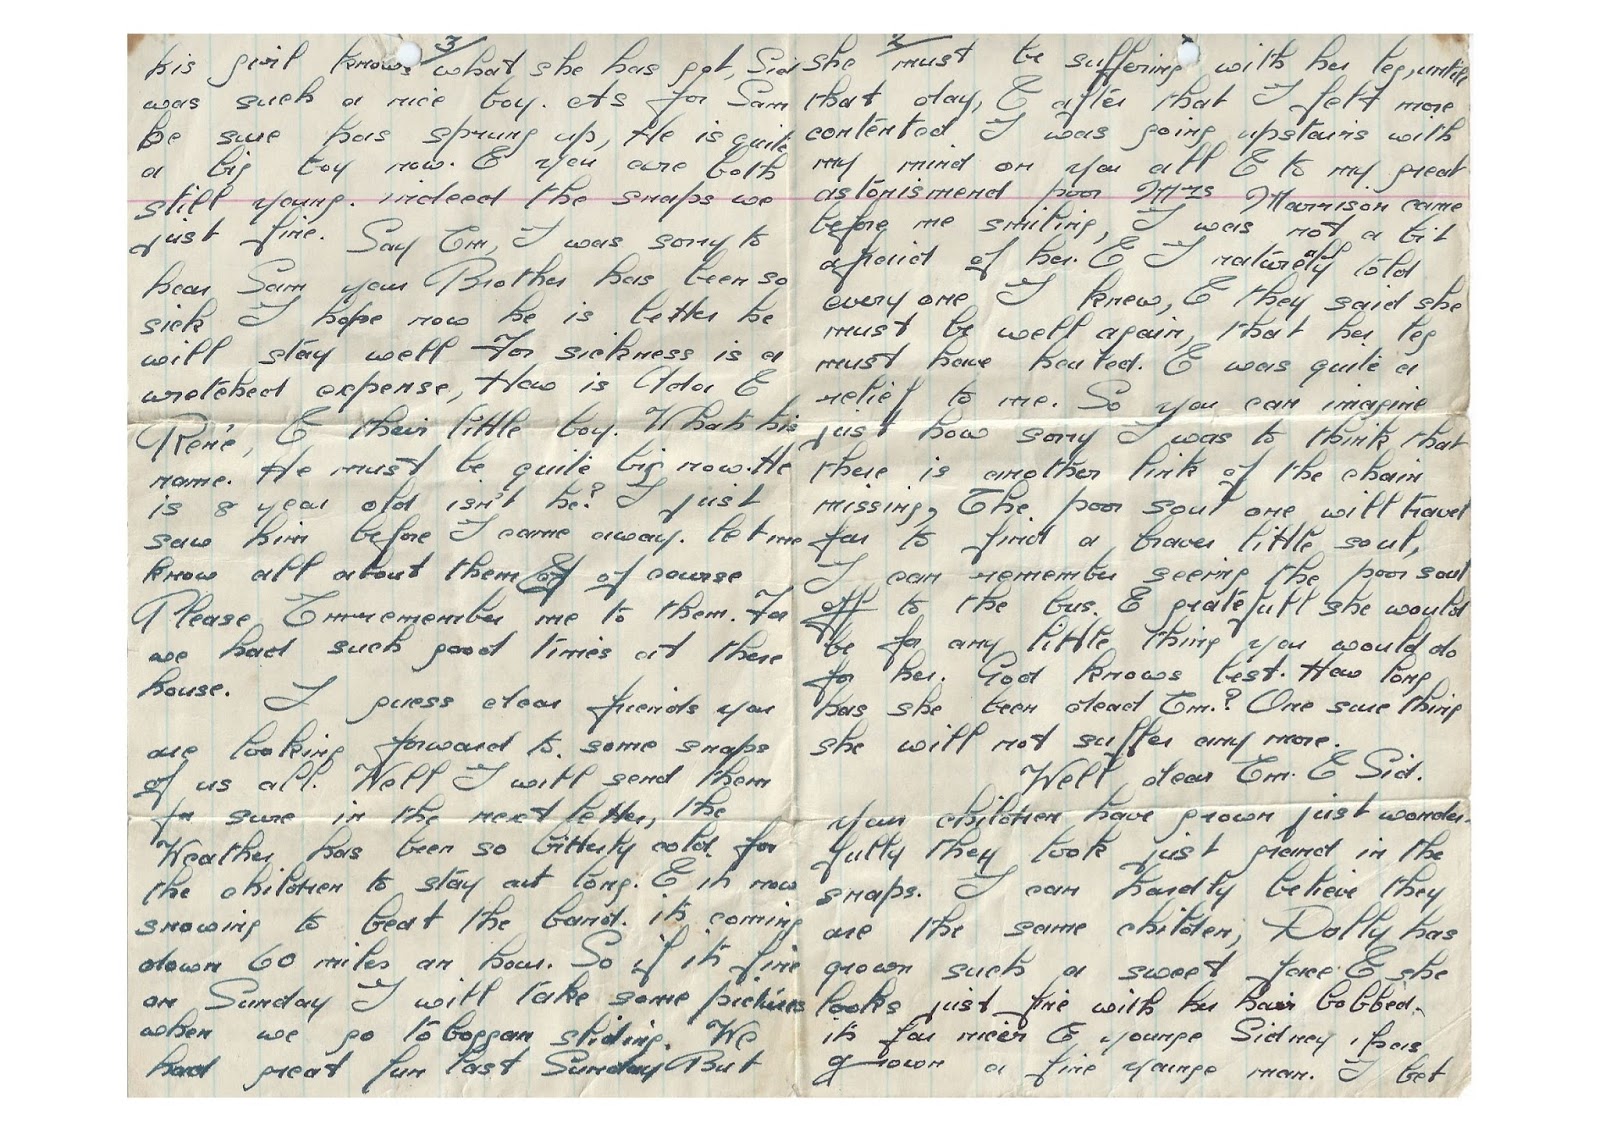 3
his girl knows what she has got, Sid
was such a nice boy. As for Sam
be sure has sprung up, He is quite
a big boy now. & you are both
still young. indeed the snaps we
just fine. Say Em, I was sorry to
hear Sam your Brother has been so
sick I hope now he is better he
will stay well For sickness is a
wretched expense, How is Ada &
René, & their little boy. Whats his
name. He must be quite big now. He
is 8 year old isn't he? I just
saw him before I came away. let me
know all about them & of course
Please Em remember me to them. For
we had such good times at there
house.
I guess dear friends you
are looking forward to some snaps
of us all. Well I will send them
for sure in the next letter, the
Weather has been so bitterly cold for
the children to stay out long. & it now
snowing to beat the band. its coming
down 60 miles an hour. So if its fine
on Sunday I will take some pictures
when we go toboggan sliding. We
had great fun last Sunday But
2
she must be suffering with her leg, until
that day, & after that I felt more
contented I was going upstairs with
my mind on you all & to my great
astonismend poor Mrs Harrison came
before me smiling, I was not a bit
afraid of her. & I naturely told
every one I knew, & they said she
must be well again, that her leg
must have healed. & was quite a
relief to me. So you can imagine
just how sorry I was to think that
there is another link of the chain
missing, The poor soul one will travel
far to find a braver little soul,
I can remember seeing the poor soul
off to the bus. & gratefull she would
be for any little thing you would do
for her. God knows best. How long
has she been dead Em? One sure thing
she will not suffer any more.
Well dear Em. & Sid.
your children have grown just wonder-
fully they took just grand in the
snaps. I can hardly believe they
are the same children, Dolly has
grown such a sweet face & she
looks just fine with her hair bobbed.
its far nicer & younge Sidney has
grown a fine younge man. I bet